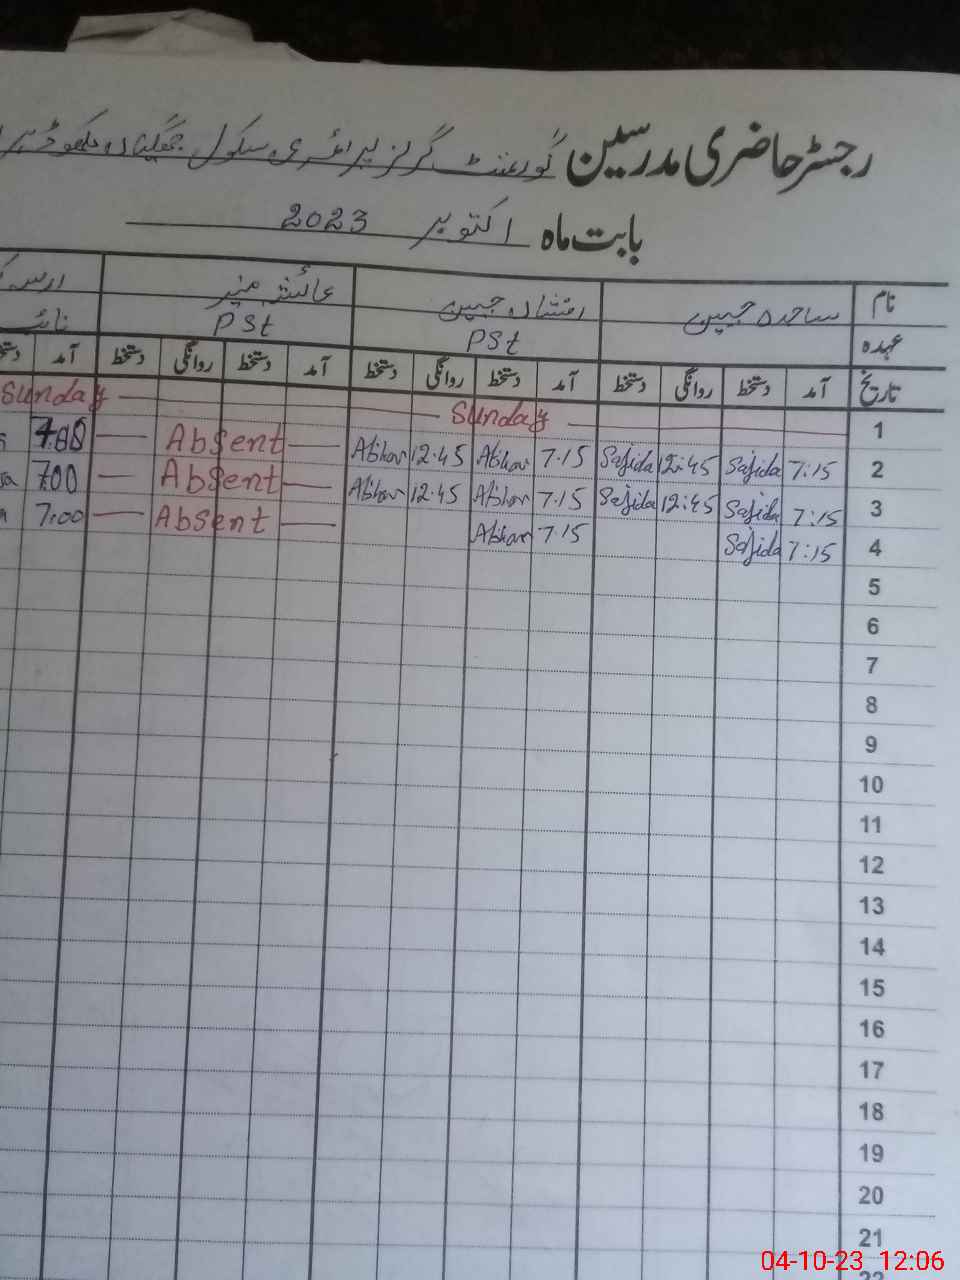 رجسٹر حاضری مدرسین گورنمنٹ گرلز پرائمری سکول
بابت ماہ اکتوبر 2023
نام ساجدہ جبیں جبیں عائشہ منیر
عہدہ PSt PSt نائب
تاریخ آمد دستخط روانگی دستخط آمد دستخط روانگی دستخط آمد دستخط روانگی دستخط آمد
1 Sunday Sunday
2 7:15 Sajida 12:45 Sajida 7.15 12.45 Absent
3 7:15 Sajida 12:45 Sajida 7.15 12.45 Absent 700
4 7:15 Sajida 7.15 Absent 7:00
5
6
7
8
9
10
11
12
13
14
15
16
17
18
19
20
21
22
04-10-23 12:06